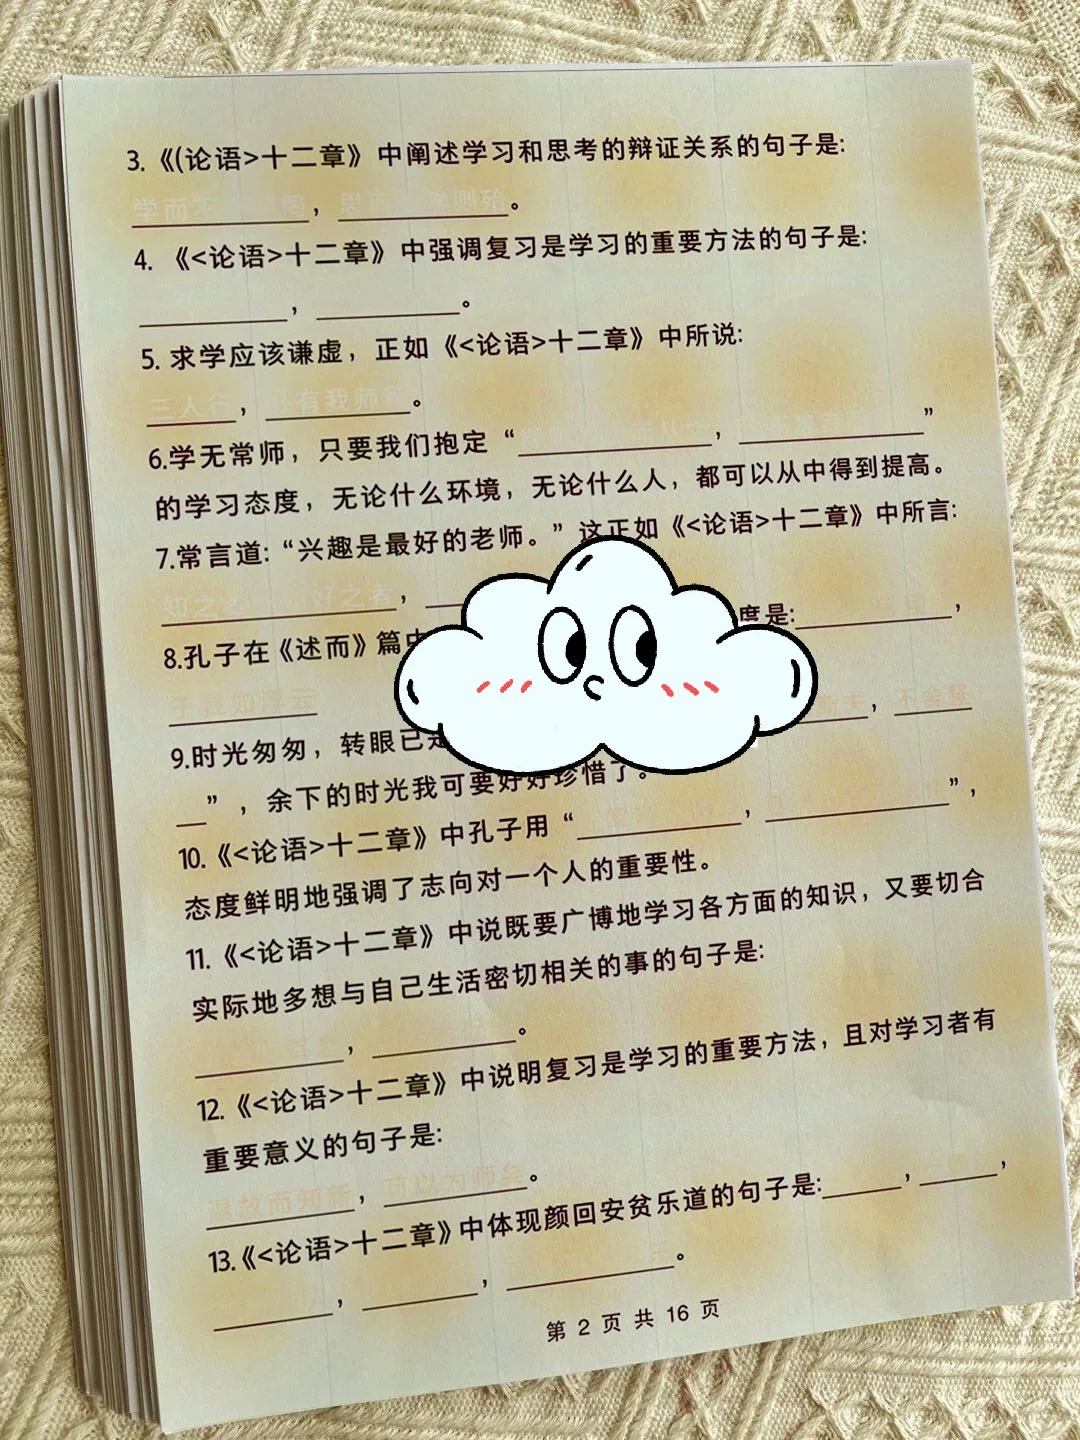 3.《(论语>十二章》中阐述学习和思考的辩证关系的句子是:
学而不 罔，思而 学则殆。
4.《<论语>十二章》中强调复习是学习的重要方法的句子是:
，。
5. 求学应该谦虚，正如《<论语>十二章》中所说:
三人行，有我师。
6.学无常师，只要我们抱定“，”
的学习态度，无论什么环境，无论什么人，都可以从中得到提高。
7.常言道:“兴趣是最好的老师。”这正如《<论语>十二章》中所言:
知之者 好之者，
8.孔子在《述而》篇中 度是:，
于我如浮云
9.时光匆匆，转眼已是 斯夫，不舍昼
”，余下的时光我可要好好珍惜了。
10.《<论语>十二章》中孔子用“，”，
态度鲜明地强调了志向对一个人的重要性。
11.《<论语>十二章》中说既要广博地学习各方面的知识，又要切合
实际地多想与自己生活密切相关的事的句子是:
，。
12.《<论语>十二章》中说明复习是学习的重要方法，且对学习者有
重要意义的句子是:
温故而知新，可以为师矣。
13.《<论语>十二章》中体现颜回安贫乐道的句子是:，，
，，。
第 2 页 共 16 页